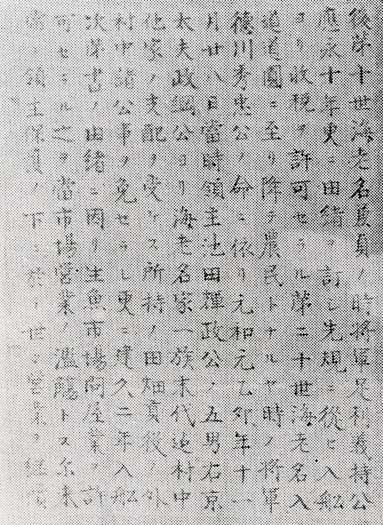 後第十世海老名眞貞ノ時將軍足利義持公
應永十年更ニ由緖ヲ訂シ先規ニ從ヒ入船
ヨリ收稅ヲ許可セラル第二十世海老名入
道道圓ニ至リ降テ農民トナルヤ時ノ將軍
德川秀忠公ノ命ニ依リ元和元乙卯年十一
月廿八日當時領主池田輝政公ノ五男右京
太夫政綱公ヨリ海老名家一族末代迄村中
他家ノ支配ヲ受ケス所持ノ田畑貢役ノ外
村中諸公事ヲ免セラレ更ニ建久二年入船
次第書ノ由緖ニ因リ生魚市場問屋業ヲ許
可セラル之ヲ當市場營業ノ濫觴トス尓来
ノ領主保員ノ下ニ於テ世々營業ヲ